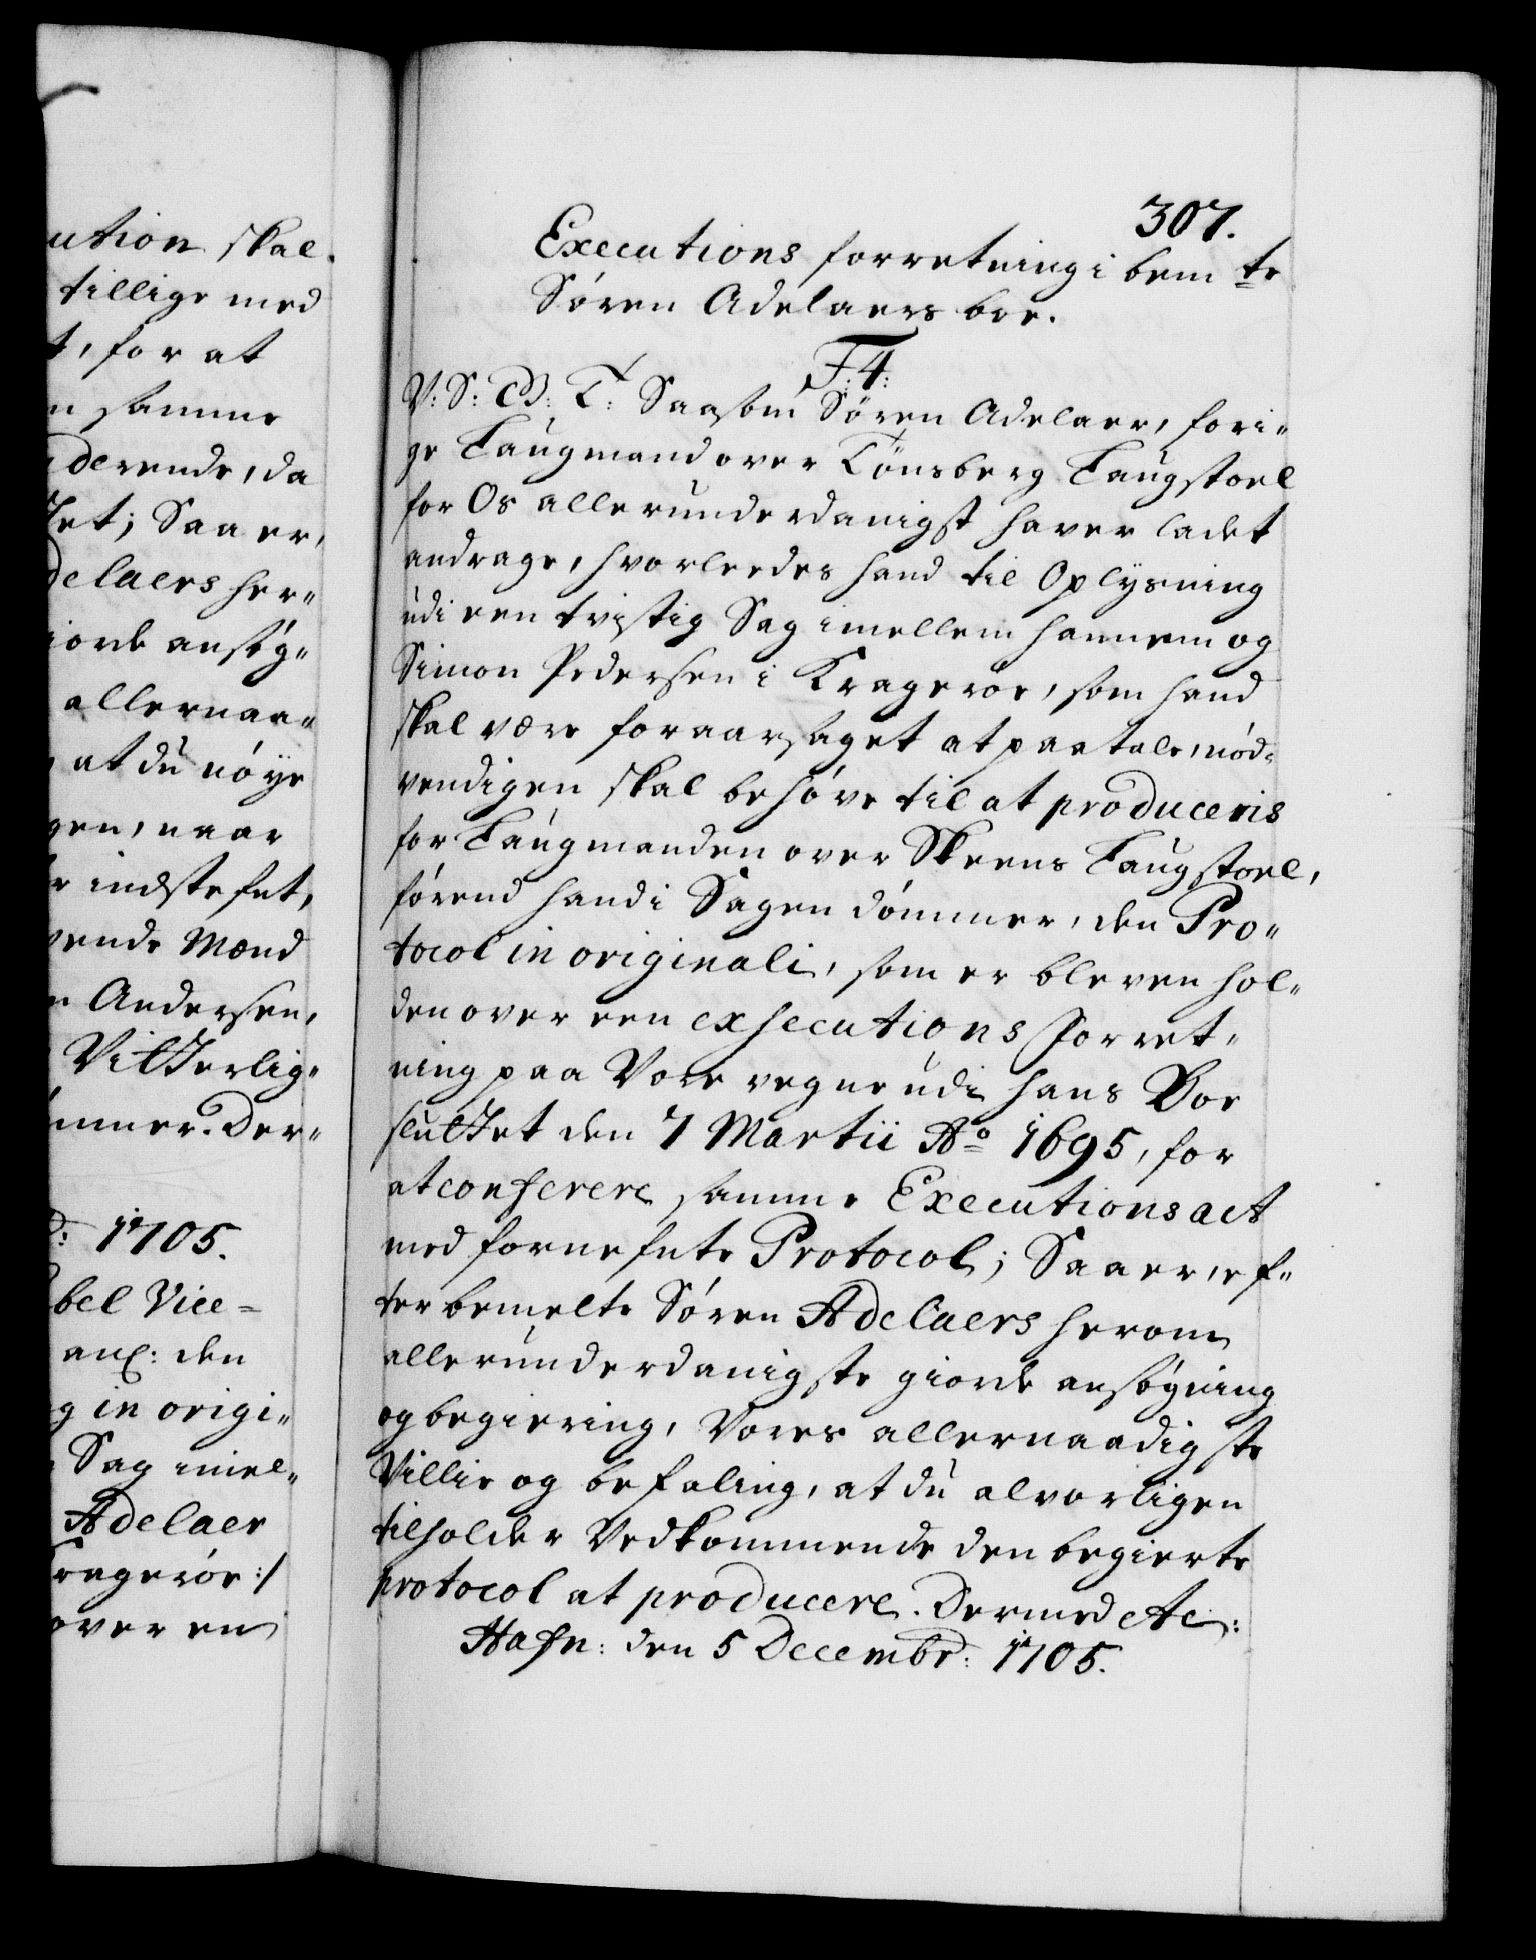 ution skal.
tillige med
t, for at
n samme
derende, da
tet; Saa er,
delaers her„
iorde ansøg„
allernaa„
at du nøye
gen, naar
indstefnt,
vende Mænd
n Andersen,
Vitterlig„
mmer. Der„
1705.
bel Vice=
anl: den
g in origi„
Sag imel„
Adelaer
ragerøe:/
over en
307.
Executions forretning i bem te
Søren Adelaers boe.
F: 4:
V: S: G: T: Saasom Søren Adelaer, fori„
ge Laugmand over Tønsberg Laugstoel
for Os allerunderdanigst haver ladet
andrage, hvorleedes hand til Oplysning
udi een tvistig Sag imellem hannem og
Simon Pedersen i Krageröe, som hand
skal være foraarsaget at paatale, nød„
vendigen skal behøve til at produceris
for Laugmanden over Skeens Laugstoel,
førend hand i Sagen dømmer, den Pro„
tocol in originali, som er bleven hol„
den over een exsecutions forret„
ning paa Vore vegne udi hans Boe
sluttet den 7 Martii Aº 1695, for
at conferere samme Executions act
med fornefnte Protocol; Saa er, ef„
ter bemelte Søren Adelaers herom
allerunderdanigste giorde ansøgning
og begiering, Vores allernaadigste
Villie og befaling, at du alvorligen
tilholder Vedkommende den begierte
protocol at producere. Dermed etc:
Hafn: den 5 Decembr: 1705.